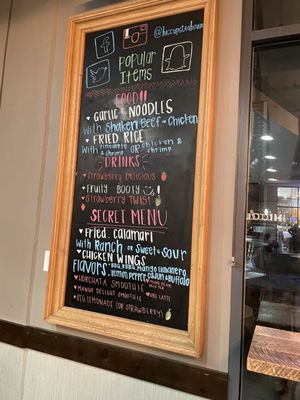 @hiccupsteahouse
Popular
Items
FOOD!!
Garlic NOODLES
With Shaken Beef or Chicken
FRIED RICE
With pineapple & shrimp OR chicken & shrimp
DRINKS
Strawberry Delicious
Fruity Booty
Strawberry TWIST
SECRET MENU
Fried Calamari
With Ranch or Sweet & Sour
CHICKEN WINGS
Flavors: BBQ, Mango Habanero,
Lemon Pepper, Cajun & Buffalo
HORCHATA SMOOTHIE
MANGO DELIGHT SMOOTHIE
LATTE
LEMONADE (OR STRAWBERRY)